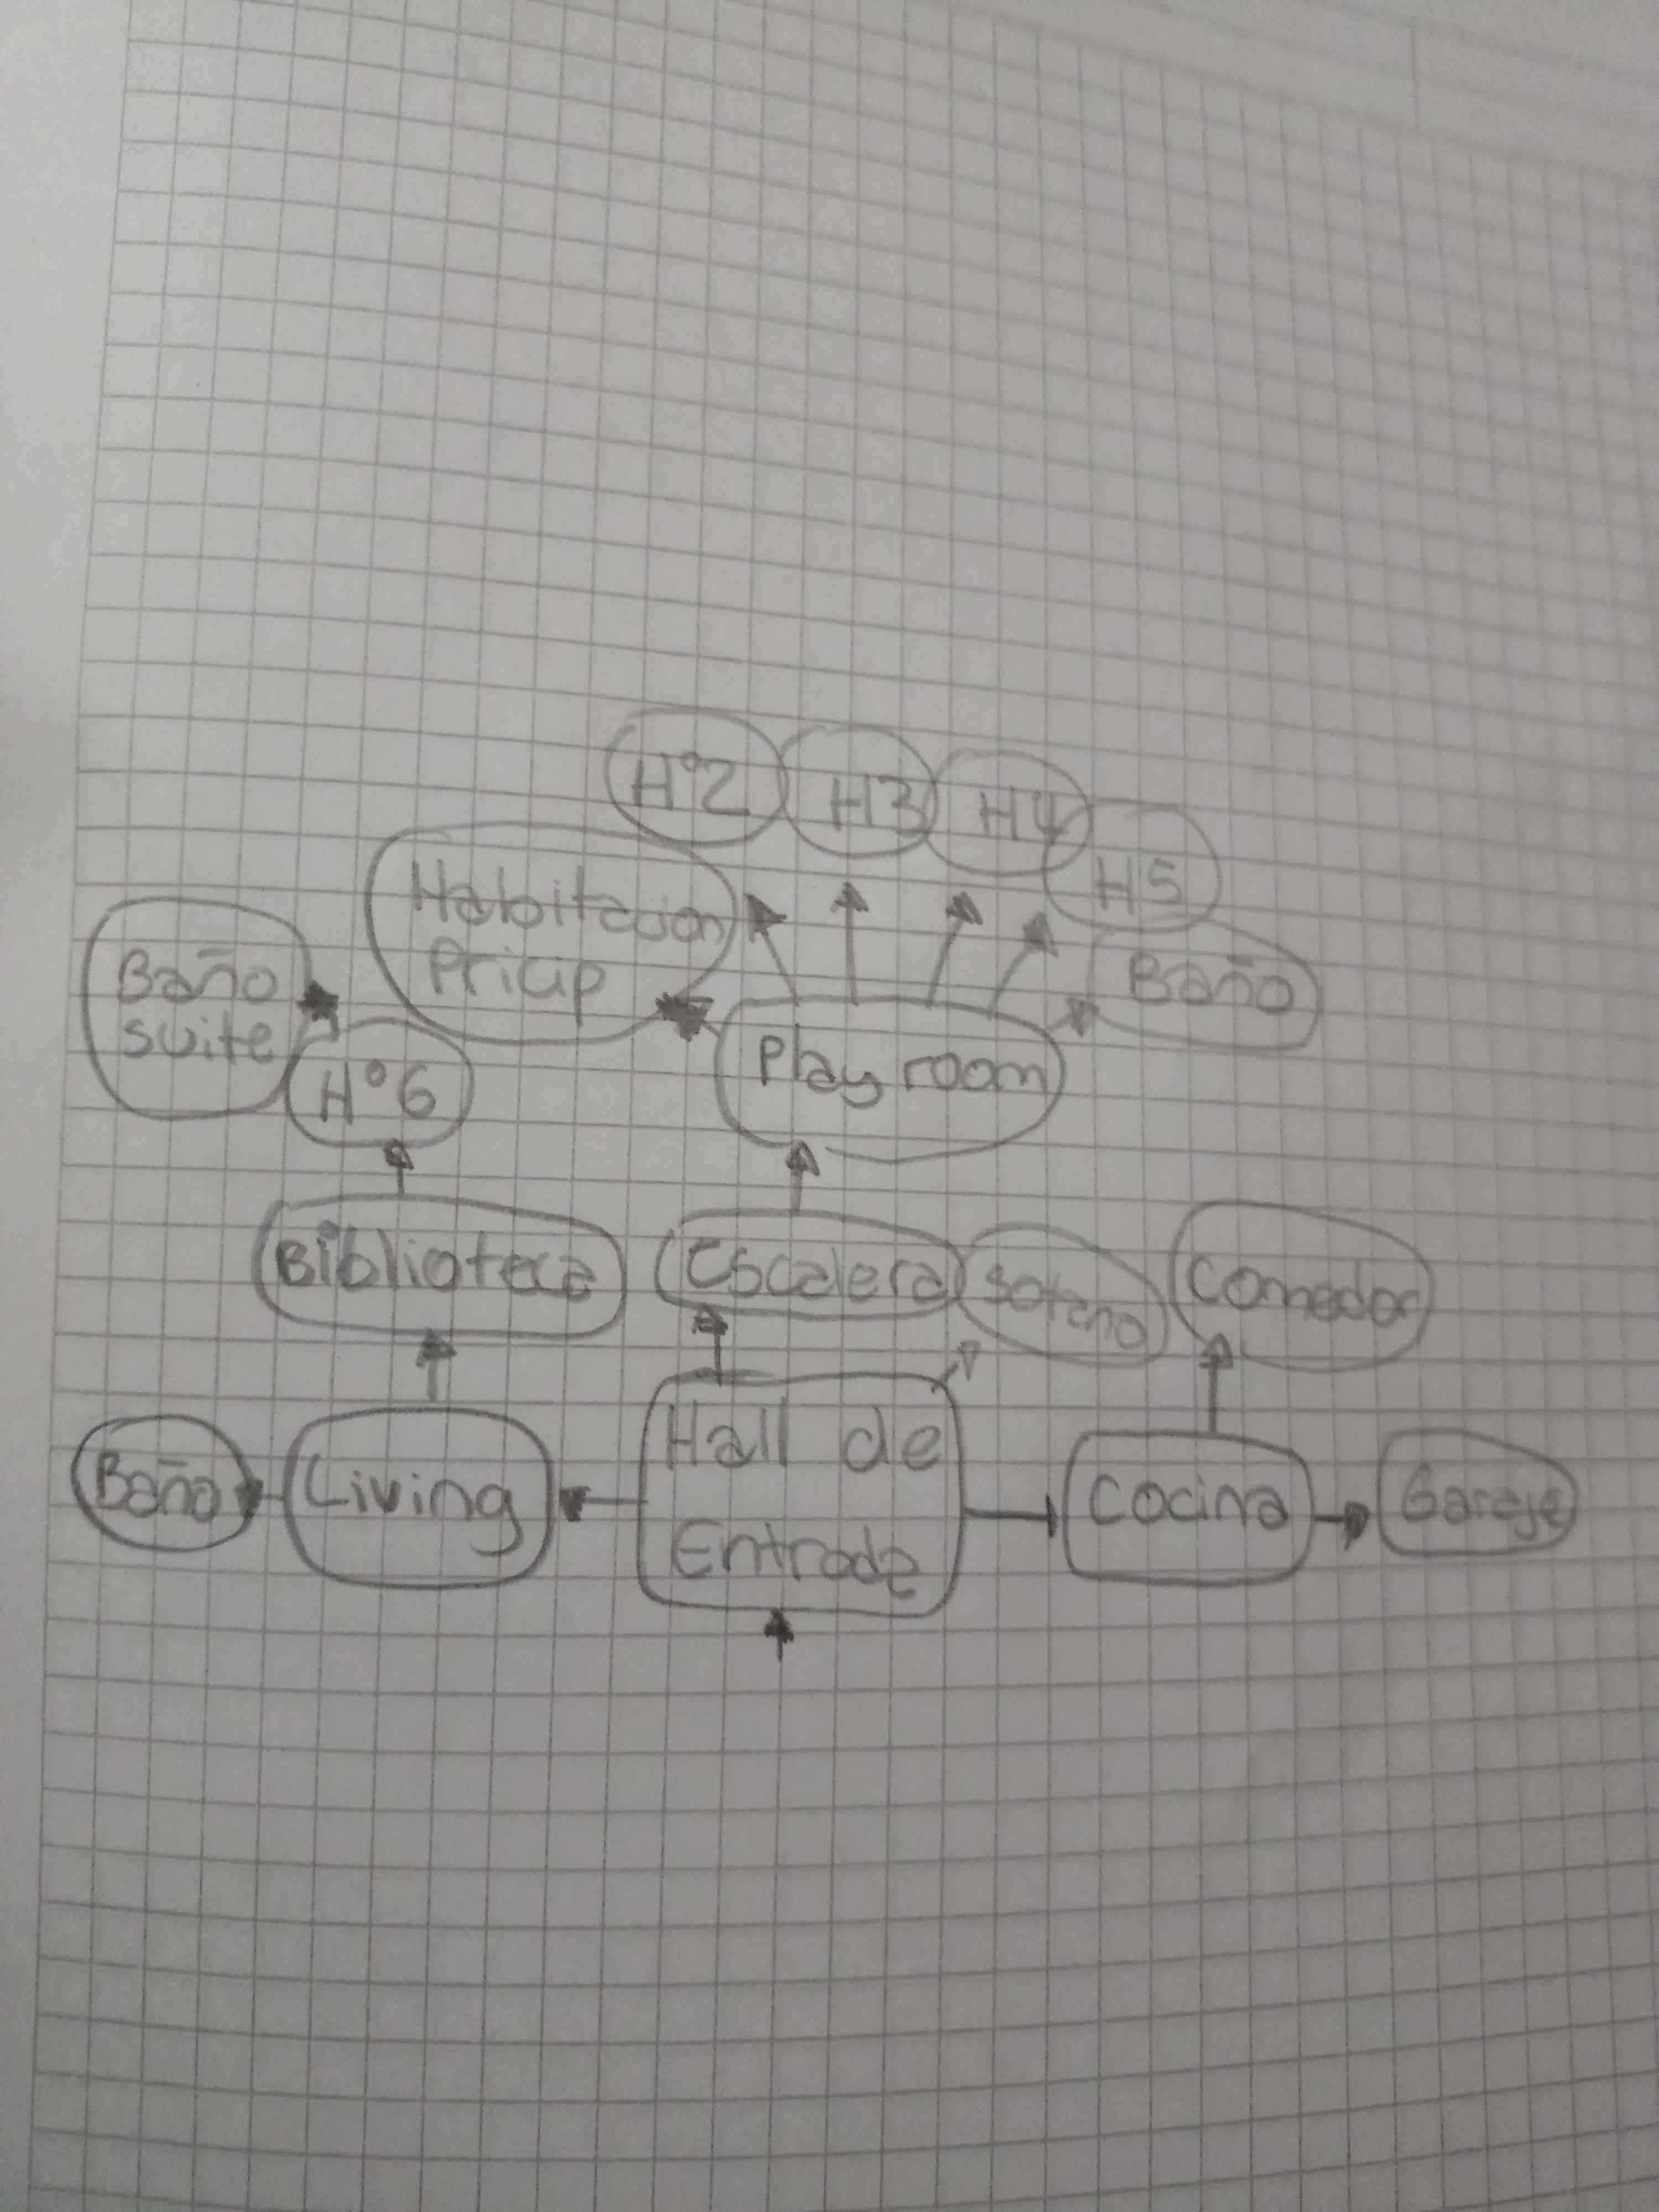 H°2
H3
H4
H5
Habitacion
Pricip
Baño
Baño
suite
H°6
Play room
Biblioteca
Escalera
Sotano
Comedor
Hall de
Entrada
Baño
Living
Cocina
Garaje